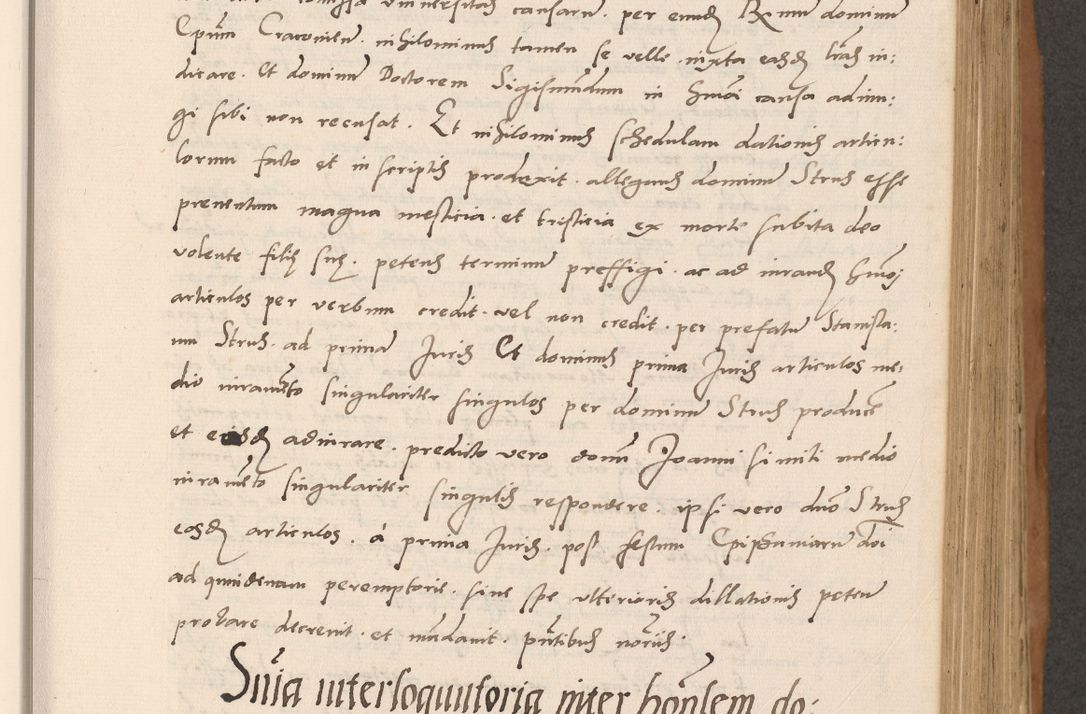 universitatis causarum per eundem Rmum dominum
Epum Cracovien. nihilominus tamen se velle iuxta easdem lras in:
dicare. Et dominum Doctorem Sigismundum in hmoi causa adiun:
gi sibi non recusat. Et nihilominus schedulam dationis articu:
lorum facto et in scriptis produxit. allegans dominum Strus esse
preventum magna mesticia et tristicia ex morte subita deo
volente filii sui. petens terminum preffigi ac ad iurandum hmoi
articulos per verbum credit vel non credit per prefatum Stanisla:
um Strus. ad prima Juris Et dominus prima Juris articulos me:
dio iuramento singulariter singulos per dominum Strus producen
et eosdem adiurare. predicto vero domi Joanni simili medio
iuramento singulariter singulis respondere. ipsi vero dno Strus
eosdem articulos. à prima Juris post festum Epiphaniarum dni
ad quindenam peremptorie. sine spe ulterioris dillationis peten
probare decrevit et mandavit. pntibus notariis.
Snia interloquutoria inter honlem do: